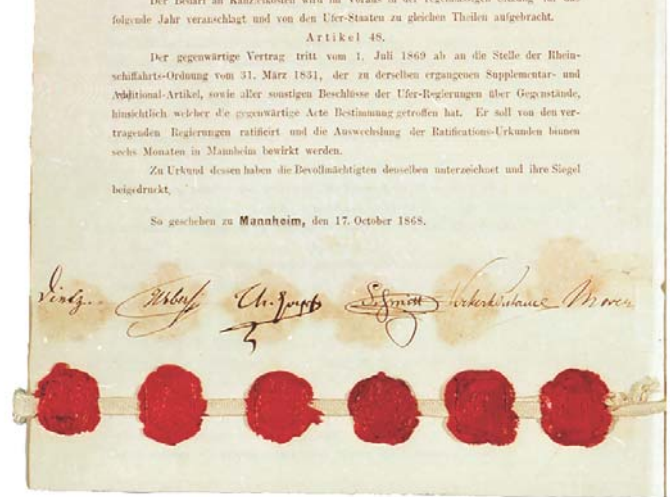 Der Bedarf an Kanzleikosten wird im Voraus in der regelmässigen Sitzung für das
folgende Jahr veranschlagt und von den Ufer-Staaten zu gleichen Theilen aufgebracht.
Artikel 48.
Der gegenwärtige Vertrag tritt vom 1. Juli 1869 ab an die Stelle der Rhein-
schiffahrts-Ordnung vom 31. März 1831, der zu derselben ergangenen Supplementar- und
Additional-Artikel, sowie aller sonstigen Beschlüsse der Ufer-Regierungen über Gegenstände,
hinsichtlich welcher die gegenwärtige Acte Bestimmung getroffen hat. Er soll von den ver-
tragenden Regierungen ratificirt und die Auswechslung der Ratifications-Urkunden binnen
sechs Monaten in Mannheim bewirkt werden.
Zu Urkund dessen haben die Bevollmächtigten denselben unterzeichnet und ihre Siegel
beigedruckt.
So geschehen zu Mannheim, den 17. October 1868.
Dietz. Schmitt